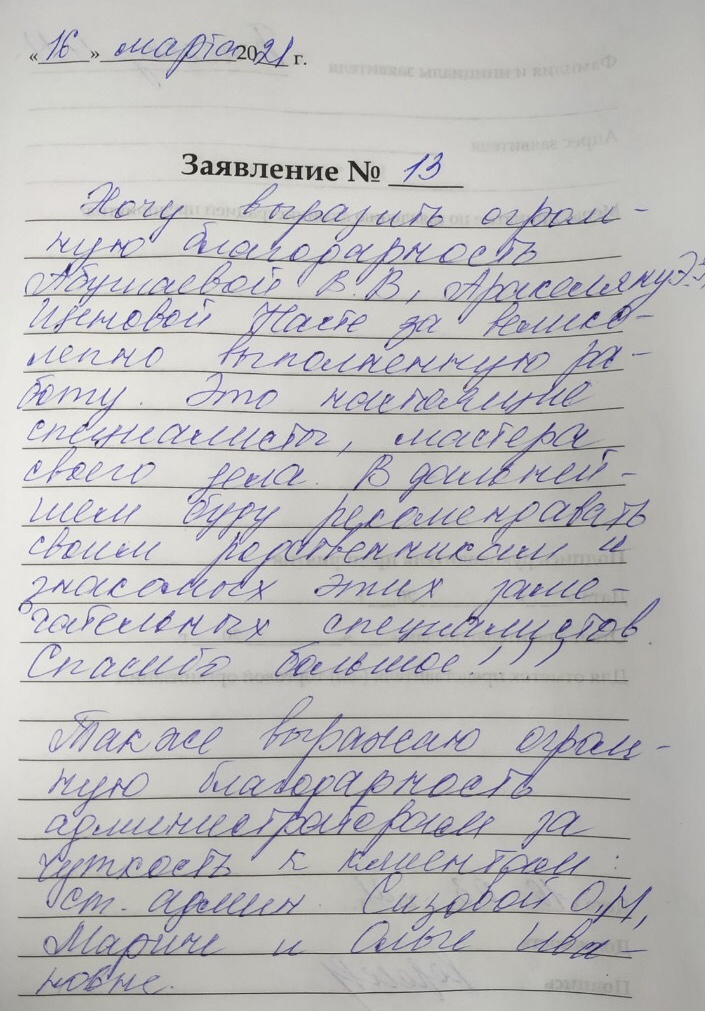 «16» марта 2021 г.
Заявление № 13
Хочу выразить огром-
ную благодарность
Абушаевой В.В, Аракеляну Э.Э,
Настье за велико-
лепно выполненную ра-
боту. Это настоящие
специалисты, мастера
своего дела. В дальней-
шем буду рекомендавать
своим родственникам и
знакомых этих заме-
чательных специалистов
Спасибо большое!!!
Также выражаю огром-
ную благодарность
администраторам за
чуткость к клиентам:
ст. админ. Сизовой О,Н,
Марине и Ольге Ива-
новне.